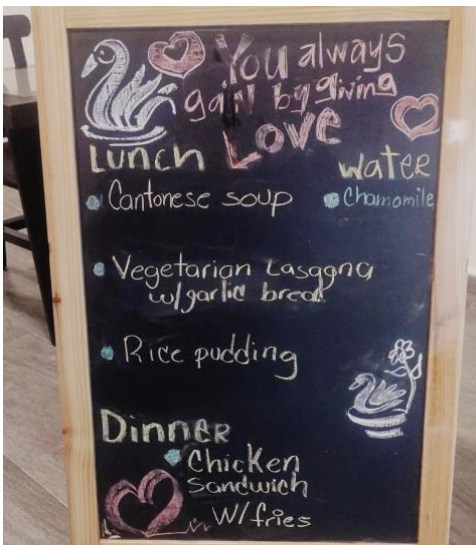 You always
gain by giving
Love
Lunch
Cantonese soup
Vegetarian Lasagna
w/garlic bread
Rice pudding
Water
Chamomile
Dinner
Chicken
Sandwich
W/fries